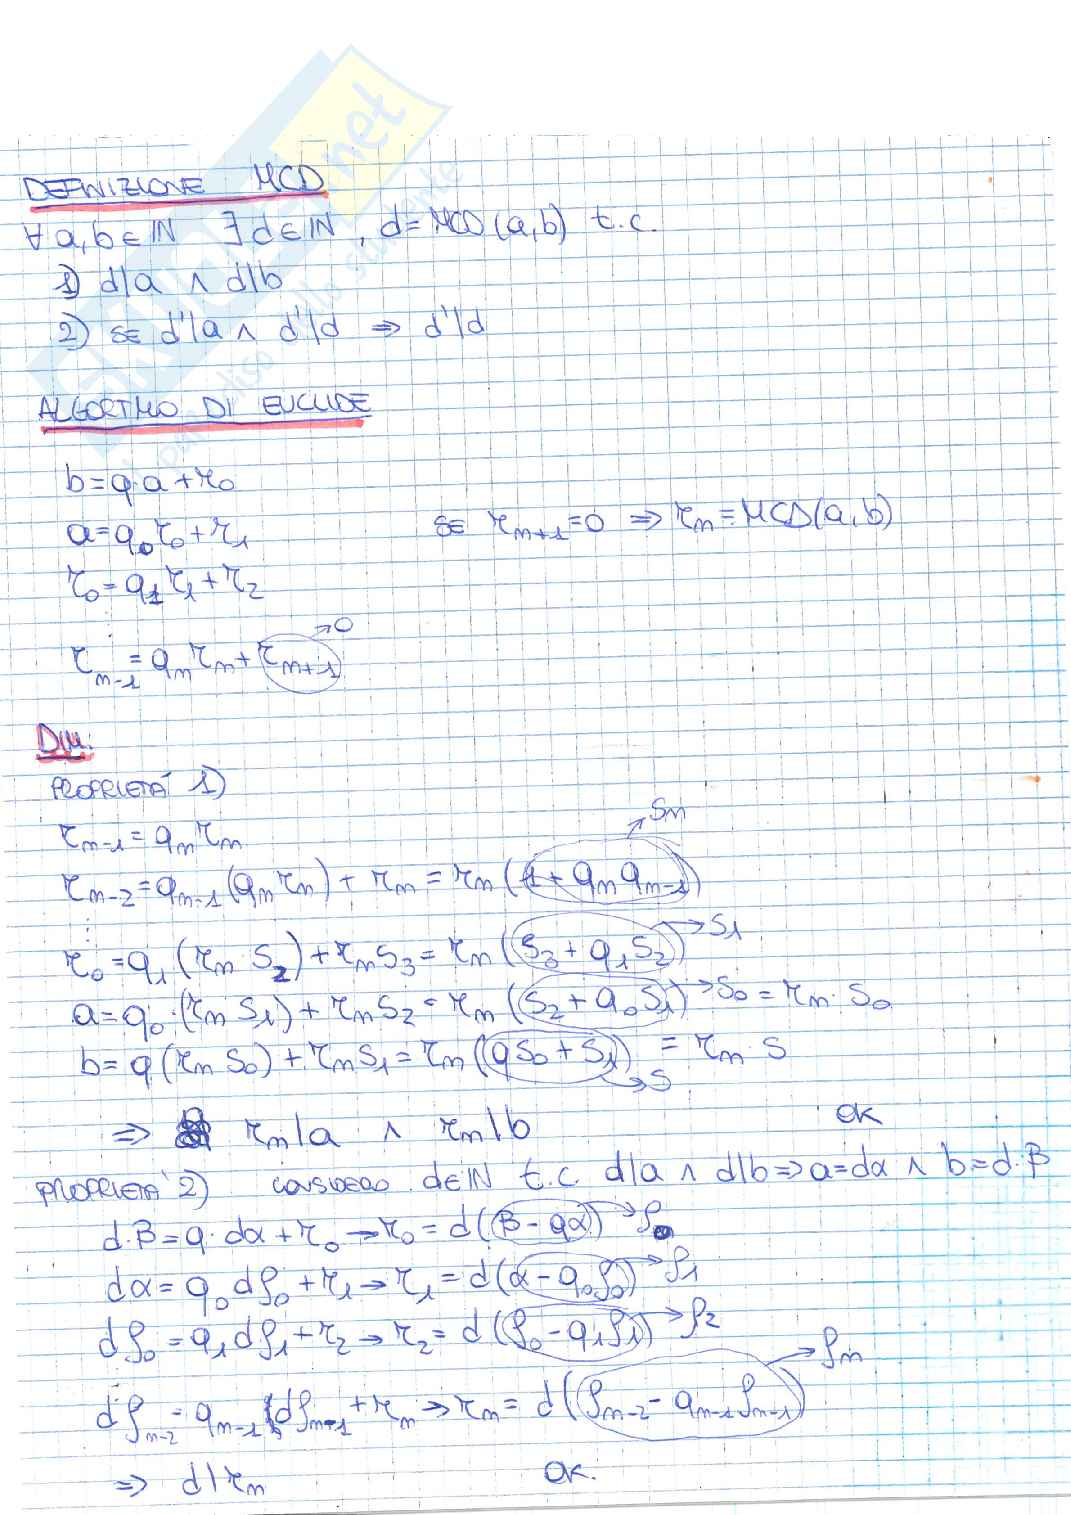 DEFINIZIONE MCD
∀ a,b ∈ ℕ ∃ d ∈ ℕ, d = MCD(a,b) t.c.
1) d|a ∧ d|b
2) SE d'|a ∧ d'|d ⇒ d'|d
ALGORTMO DI EUCLIDE
b = q·a + r₀
a = q₀r₀ + r₁
SE rₙ₊₁ = 0 ⇒ rₙ = MCD(a,b)
r₀ = q₁r₁ + r₂
⋮
rₙ₋₁ = qₙrₙ + rₙ₊₁ → 0
DIM.
PROPRIETÀ 1)
rₙ₋₁ = qₙrₙ
rₙ₋₂ = qₙ₋₁(qₙrₙ) + rₙ = rₙ(1 + qₙqₙ₋₁) → Sₙ
⋮
r₀ = q₁(rₙ·S₂) + rₙS₃ = rₙ(S₃ + q₁S₂) → S₁
a = q₀·(rₙS₁) + rₙS₂ = rₙ(S₂ + q₀S₁) → S₀ = rₙ·S₀
b = q(rₙS₀) + rₙS₁ = rₙ(qS₀ + S₁) = rₙ·S
→ S
⇒ rₙ|a ∧ rₙ|b OK
PROPRIETÀ 2) CONSIDERO d∈ℕ t.c. d|a ∧ d|b ⇒ a = dα ∧ b = d·β
d·β = q·dα + r₀ → r₀ = d(β - qα) → ρ₀
dα = q₀dρ₀ + r₁ → r₁ = d(α - q₀ρ₀) → ρ₁
dρ₀ = q₁dρ₁ + r₂ → r₂ = d(ρ₀ - q₁ρ₁) → ρ₂
⋮
dρₙ₋₂ = qₙ₋₁dρₙ₋₁ + rₙ → rₙ = d(ρₙ₋₂ - qₙ₋₁ρₙ₋₁) → ρₙ
⇒ d|rₙ OK.